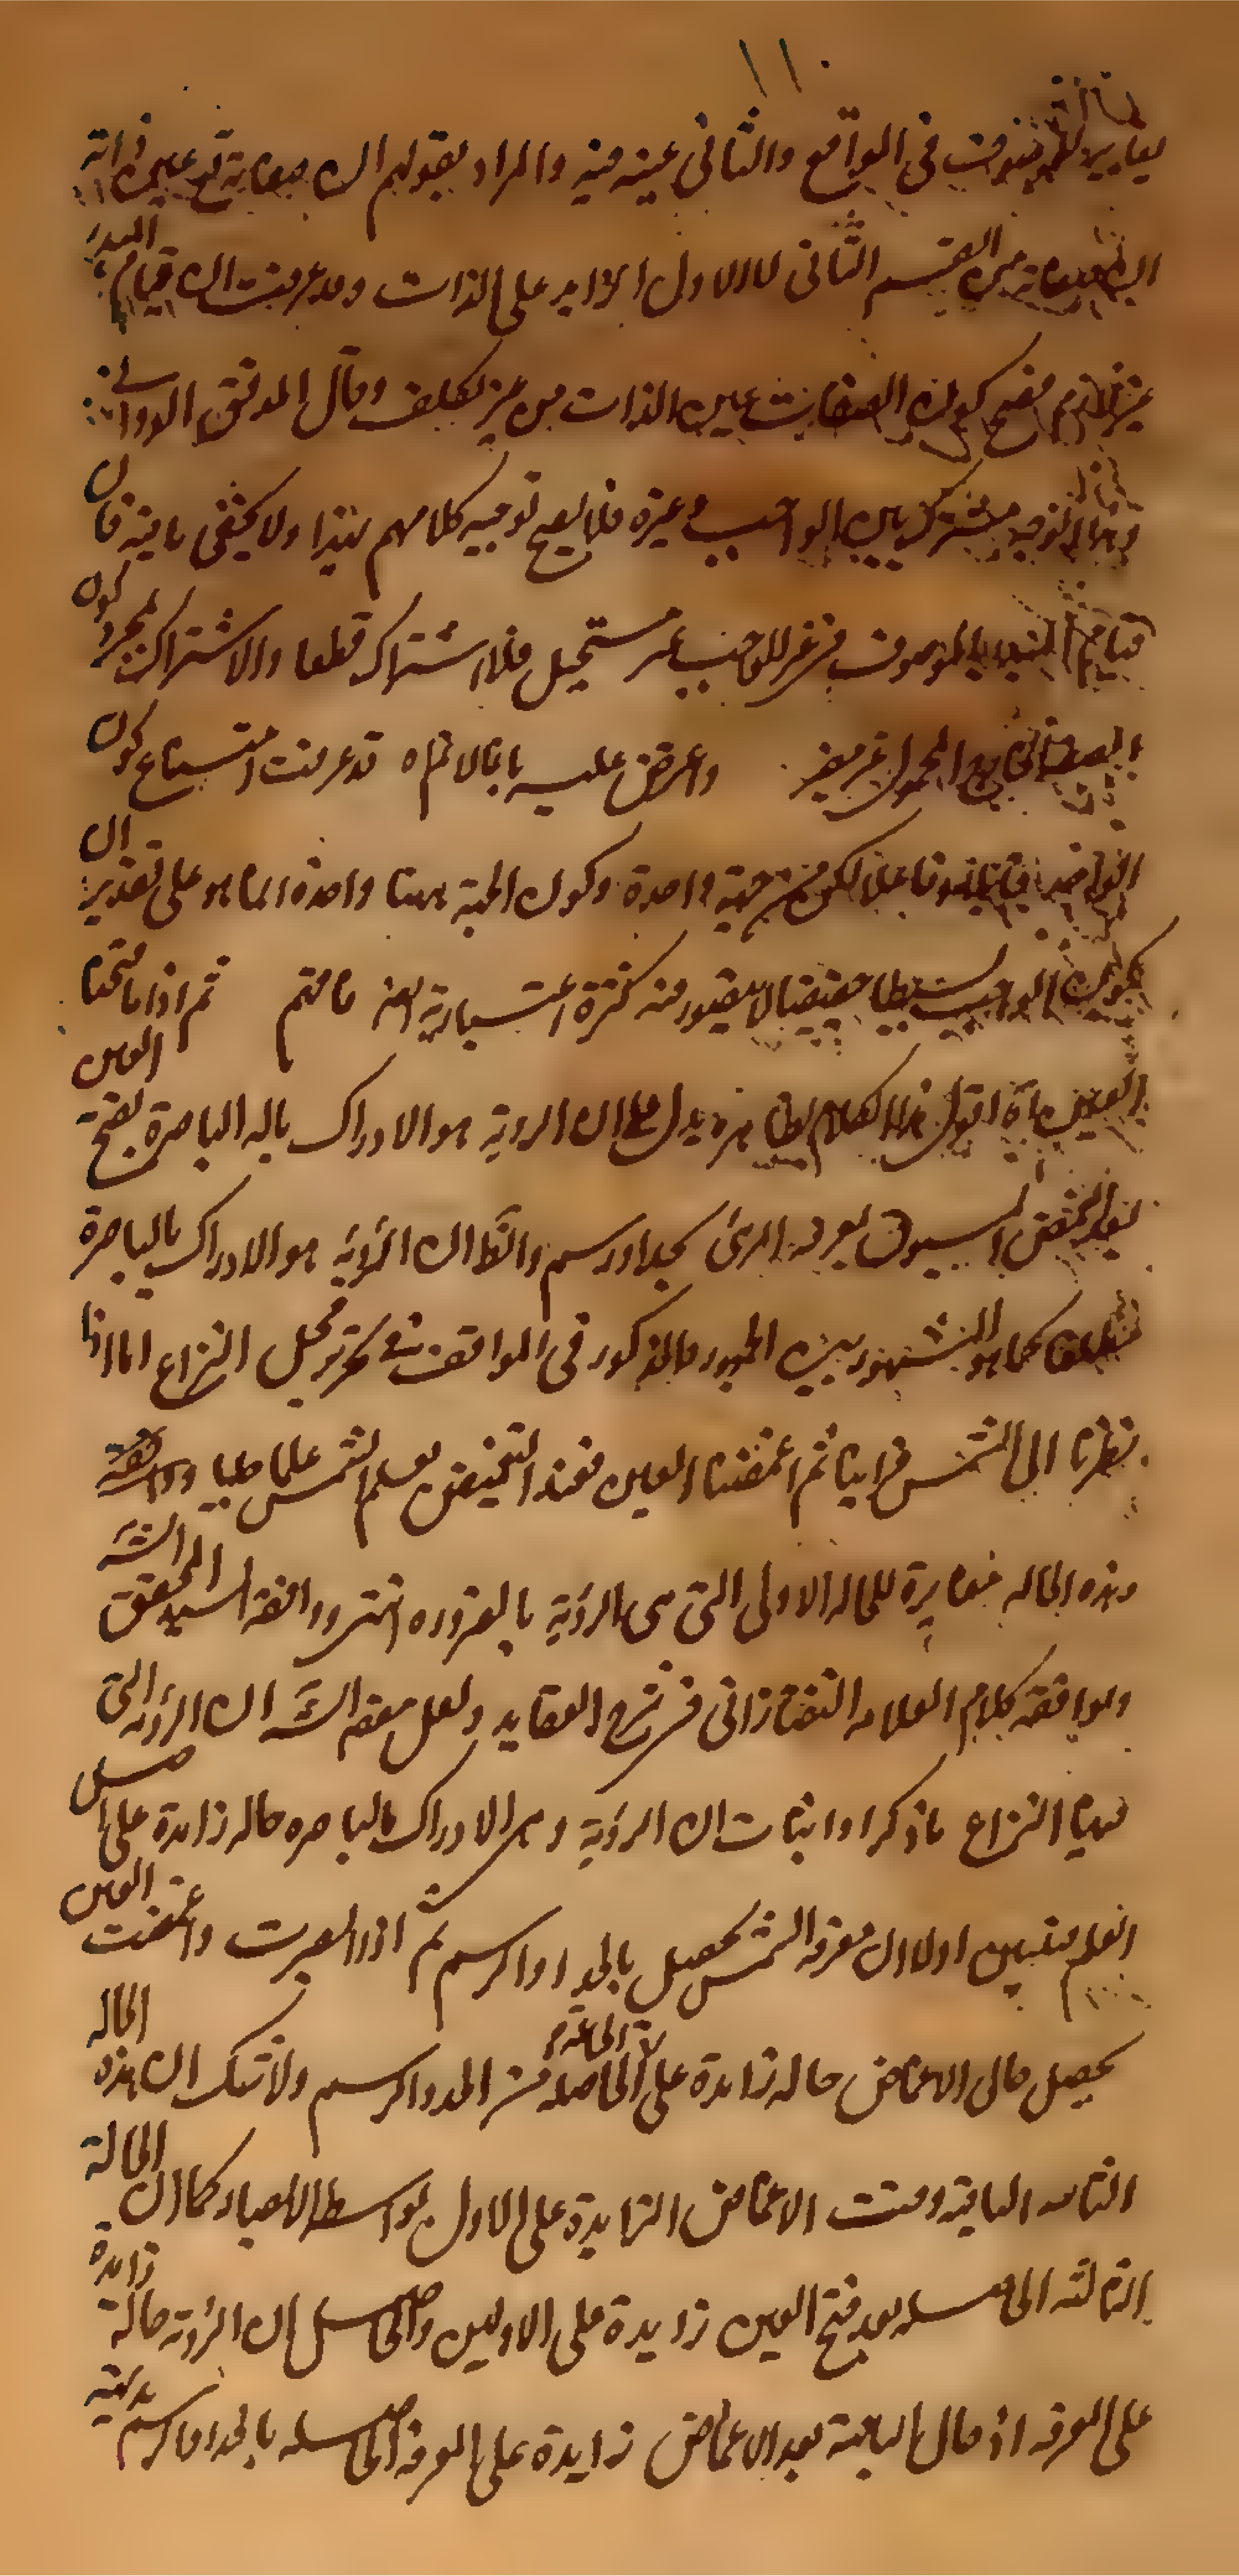 ١١٠
يغاير الموصوف فى الواقع والثانى عينه فيه والمراد بقولهم ان صفاته تع عين ذاته
ان صفاته من القسم الثانى لا الاول الزايد على الذات وقد عرفت ان قيام المبدء
غير لازم فصح كون الصفات عين الذات من غير تكلف وقال المدقق الدوانى
وهذا التوجيه مشترك بين الواجب وغيره فلا يصح توجيه كلامهم بهذا ولا يخفى ما فيه فان
قيام المبدء بالموصوف فى غير الواجب غير مستحيل فلا اشتراك قطعا والاشتراك بمجرد كون
واعترض عليه بانا لانم اه قد عرفت امتناع كون
الواحد قابلا وفاعلا لكن من جهة واحدة وكون الجهة ههنا واحدة انما هو على تقدير ان
يكون الواجب بسيطا حقيقيا لا يتصور منه كثرة اعتبارية ايضا فافهم ثم اذا فتحنا
العين اه اقول هذا الكلام بظاهره يدل على ان الرؤية هو الادراك بالة الباصرة بفتح العين
بعد التغميض المسبوق بمعرفة المرئى بحد او رسم والظ ان الرؤية هو الادراك بالباصرة
مطلقا كما هو المشهور بين الجمهور فالمذكور فى المواقف فى تحرير محل النزاع انا اذا
نظرنا الى الشمس فرايناها ثم اغمضنا العين فعند التغميض نعلم الشمس علما جليا
وهذه الحالة مغايرة للحالة الاولى التى هى الرؤية بالضرورة انتهى ووافقه السيد المحقق الش
ويوافقه كلام العلامة التفتازانى فى شرح العقايد ولعل مقصد الش ان الرؤية التى
فيها النزاع ما ذكر او اثبات ان الرؤية وهى الادراك بالباصرة حالة زايدة على اصل
العلم فتبين اولا ان معرفة الشمس يحصل بالحد او الرسم ثم اذا ابصرت واغمضت العين
يحصل حال الاغماض حالة زايدة على الحالة الحاصلة من الحد والرسم ولا شك ان هذه الحالة
الثانية الباقية وقت الاغماض الزايدة على الاول بواسطة الابصار كما ان الحالة
الثالثة الحاصلة بعد فتح العين زايدة على الاوليين والحاصل ان الرؤية حالة زايدة
على المعرفة اذ حال الباقية بعد الاغماض زايدة على المعرفة الحاصلة بالحد او الرسم بديهة